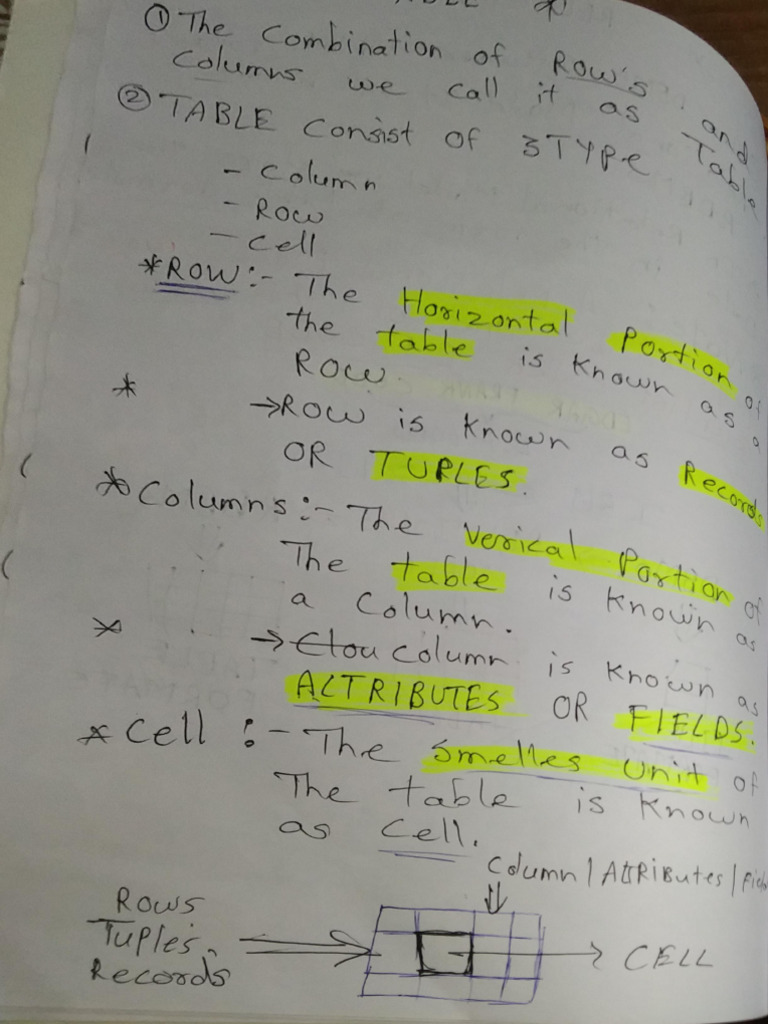 ① The Combination of Row's and
Columns we call it as Table
② TABLE Consist of 3 TYPe
- Column
- Row
- Cell
* ROW :- The Horizontal Portion of
the table is known as a
Row.
* → ROW is known as Records
OR TUPLES.
* Columns :- The Verical Portion of
The table is known as
a Column.
* → Column is known as
ALTRIBUTES OR FIELDS.
* Cell :- The Smelles Unit of
The table is known
as Cell.
Column / AttRibutes /
Rows
Tuples.
Records
CELL